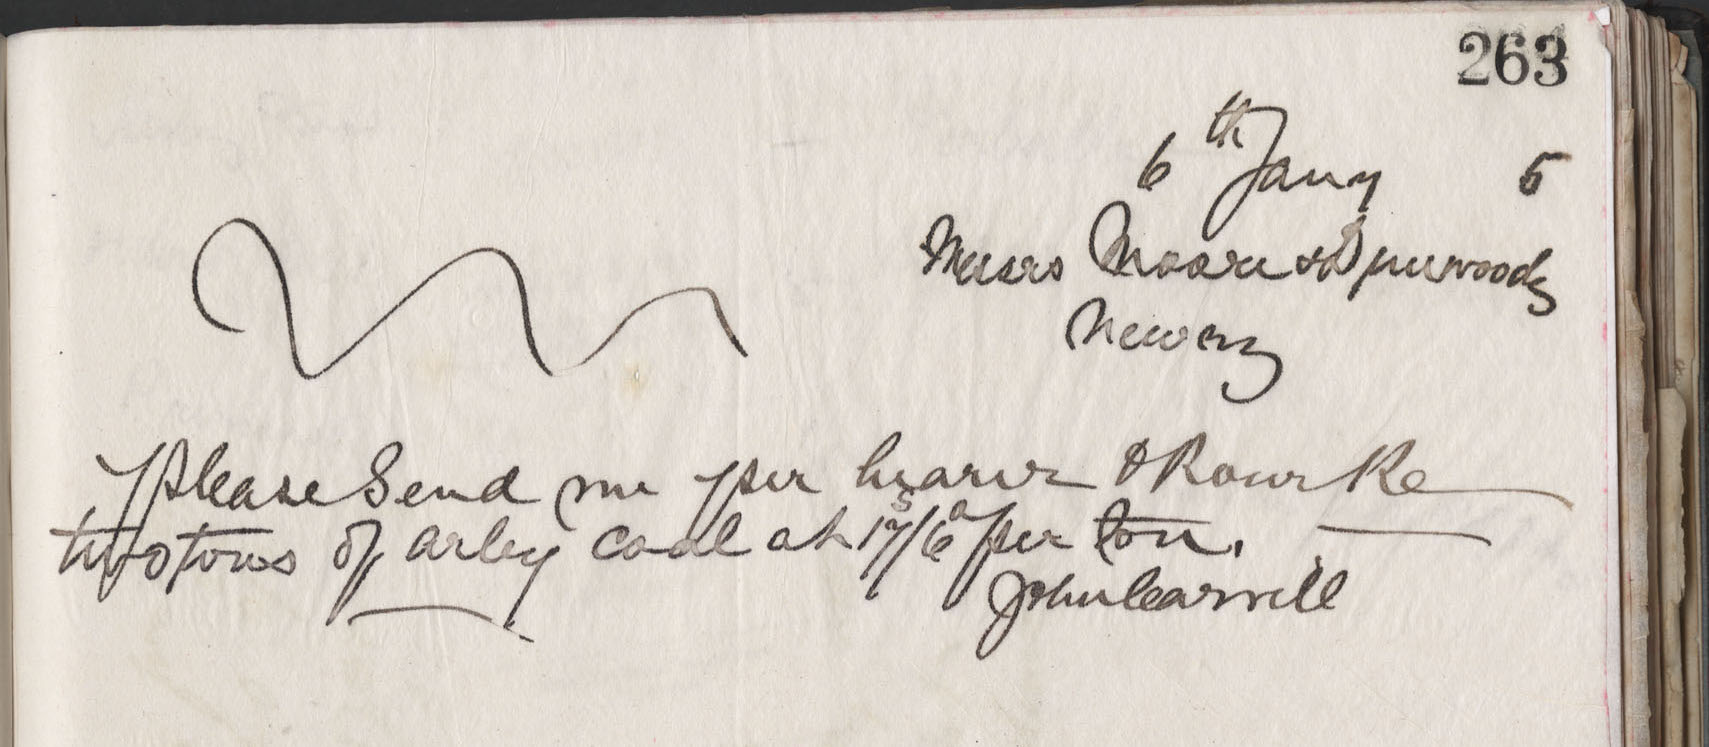 263
6th Jany 5
Messrs Moore & Dunwoody
Newry
Please Send me per bearer O Rourke
two tons of arley Coal at 17s/6d per ton.
John Carvill